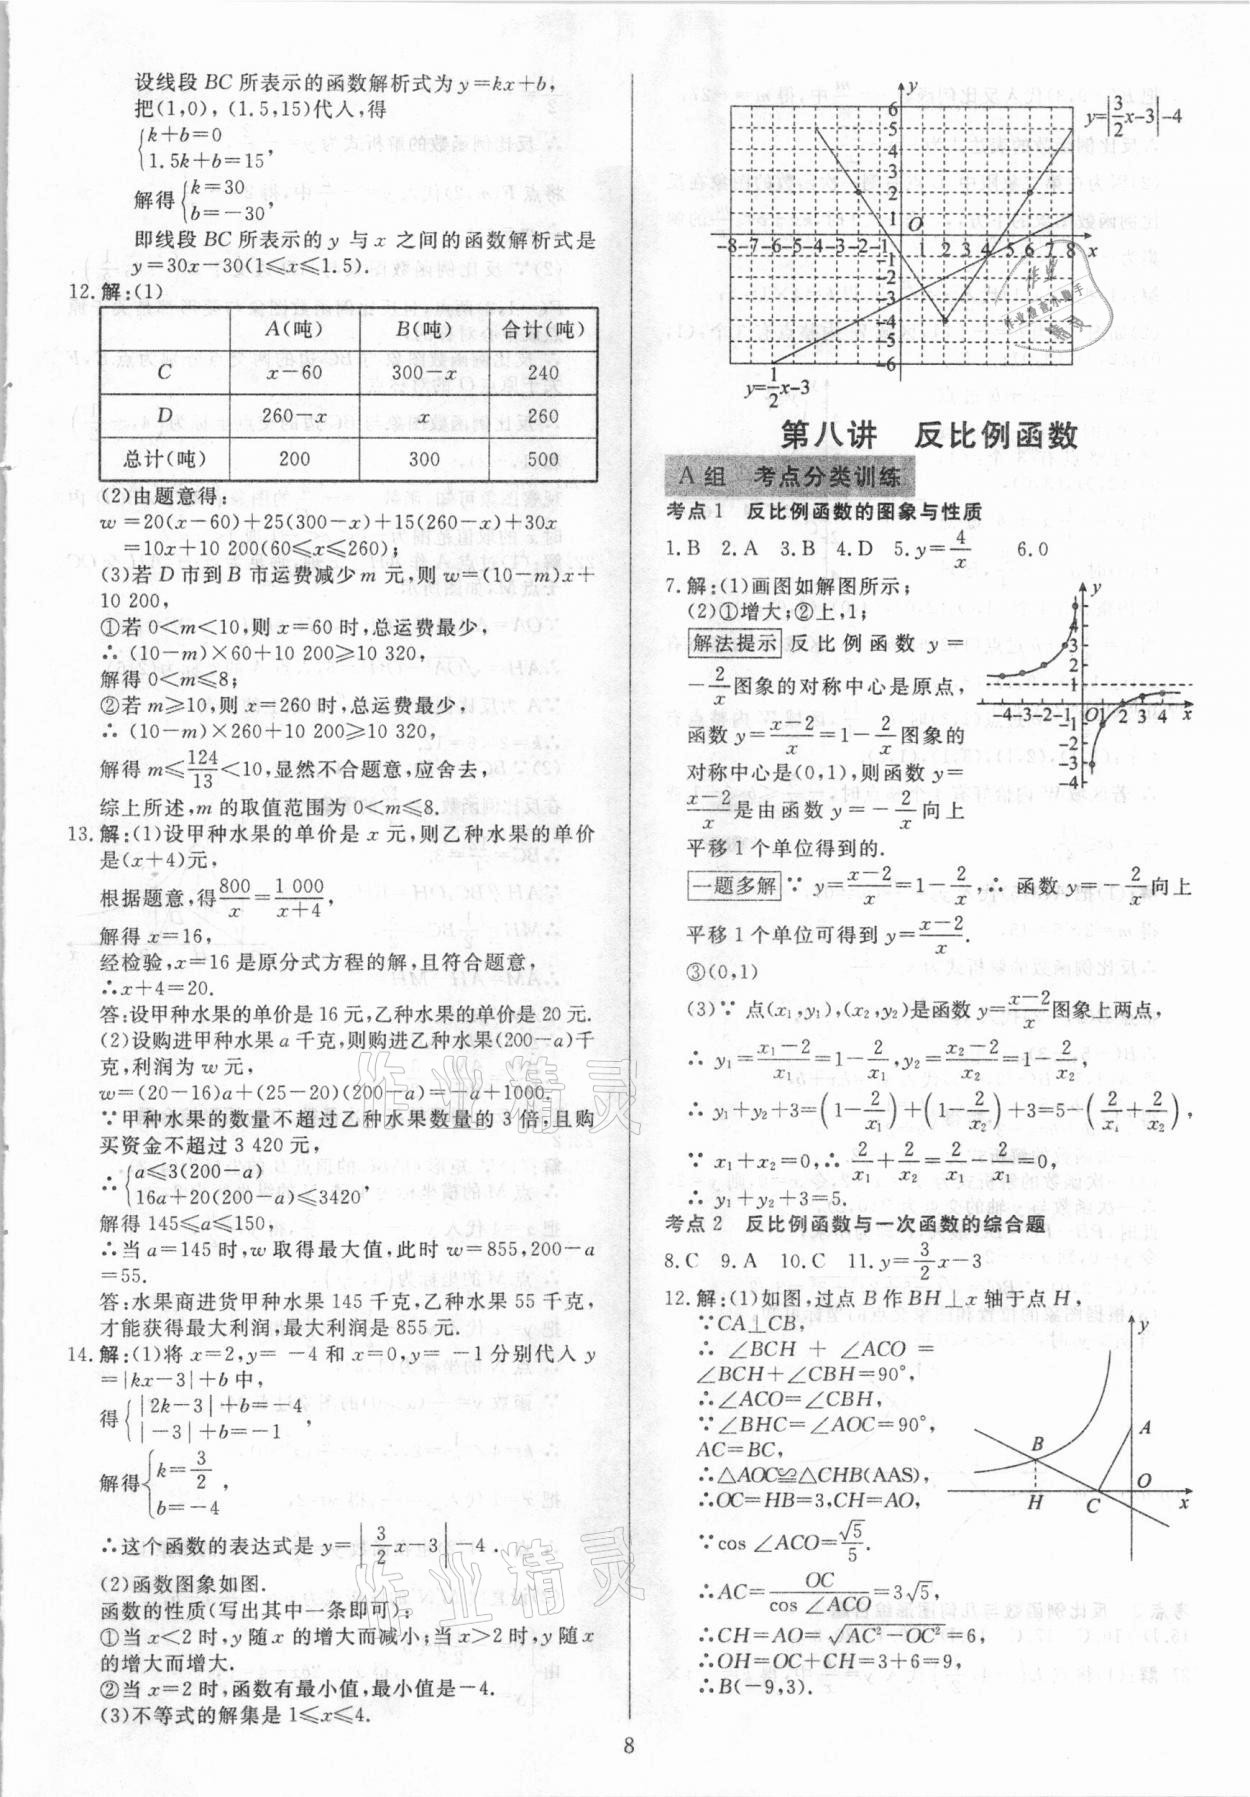 设线段 BC 所表示的函数解析式为 y=kx+b,
把(1,0), (1.5,15)代入,得
{k+b=0
1.5k+b=15,
解得{k=30
b=-30,
即线段 BC 所表示的 y 与 x 之间的函数解析式是
y=30x-30(1≤x≤1.5).
12.解:(1)
A(吨) B(吨) 合计(吨)
C x-60 300-x 240
D 260-x x 260
总计(吨) 200 300 500
(2)由题意得:
w=20(x-60)+25(300-x)+15(260-x)+30x
=10x+10 200(60≤x≤260);
(3)若 D 市到 B 市运费减少 m 元,则 w=(10-m)x+
10 200,
①若 0<m<10,则 x=60 时,总运费最少,
∴ (10-m)×60+10 200≥10 320,
解得 0<m≤8;
②若 m≥10,则 x=260 时,总运费最少,
∴ (10-m)×260+10 200≥10 320,
解得 m≤124/13<10,显然不合题意,应舍去,
综上所述,m 的取值范围为 0<m≤8.
13.解:(1)设甲种水果的单价是 x 元,则乙种水果的单价
是(x+4)元,
根据题意,得800/x=1 000/(x+4),
解得 x=16,
经检验,x=16 是原分式方程的解,且符合题意,
∴x+4=20.
答:设甲种水果的单价是 16 元,乙种水果的单价是 20 元.
(2)设购进甲种水果 a 千克,则购进乙种水果(200-a)千
克,利润为 w 元,
w=(20-16)a+(25-20)(200-a)=-a+1000.
∵甲种水果的数量不超过乙种水果数量的 3 倍,且购
买资金不超过 3 420 元,
∴{a≤3(200-a)
16a+20(200-a)≤3420,
解得 145≤a≤150,
∴当 a=145 时,w 取得最大值,此时 w=855,200-a
=55.
答:水果商进货甲种水果 145 千克,乙种水果 55 千克,
才能获得最大利润,最大利润是 855 元.
14.解:(1)将 x=2,y= -4 和 x=0,y= -1 分别代入 y
=|kx-3|+b 中,
得{|2k-3|+b=-4
|-3|+b=-1,
解得{k=3/2
b=-4,
∴这个函数的表达式是 y=|3/2x-3|-4.
(2)函数图象如图.
函数的性质(写出其中一条即可):
①当 x<2 时,y 随 x 的增大而减小;当 x>2 时,y 随 x
的增大而增大.
②当 x=2 时,函数有最小值,最小值是-4.
(3)不等式的解集是 1≤x≤4.
y=|3/2x-3|-4
6
5
4
3
2
1
O
-8-7-6-5-4-3-2-1 1 2 3 4 5 6 7 8 x
-1
-2
-3
-4
-5
-6
y=1/2x-3
第八讲 反比例函数
A 组 考点分类训练
考点 1 反比例函数的图象与性质
1.B 2.A 3.B 4.D 5.y=4/x 6.0
7.解:(1)画图如解图所示;
(2)①增大;②上,1;
解法提示 反比例函数 y=
-2/x图象的对称中心是原点,
函数 y=(x-2)/x=1-2/x图象的
对称中心是(0,1),则函数 y=
(x-2)/x是由函数 y=-2/x向上
平移 1 个单位得到的.
y
4
3
2
1
-4-3-2-1 O 1 2 3 4 x
-1
-2
-3
-4
一题多解 ∵ y=(x-2)/x=1-2/x,∴ 函数 y=-2/x向上
平移 1 个单位可得到 y=(x-2)/x.
③(0,1)
(3)∵ 点(x₁,y₁),(x₂,y₂)是函数 y=(x-2)/x图象上两点,
∴ y₁=(x₁-2)/x₁=1-2/x₁,y₂=(x₂-2)/x₂=1-2/x₂,
∴ y₁+y₂+3=(1-2/x₁)+(1-2/x₂)+3=5-(2/x₁+2/x₂),
∵ x₁+x₂=0,∴2/x₁+2/x₂=2/x₁-2/x₁=0,
∴ y₁+y₂+3=5.
考点 2 反比例函数与一次函数的综合题
8.C 9.A 10.C 11.y=3/2x-3
12.解:(1)如图,过点 B 作 BH⊥x 轴于点 H,
∵CA⊥CB,
∴ ∠BCH + ∠ACO =
∠BCH+∠CBH=90°,
∴∠ACO=∠CBH,
∵∠BHC=∠AOC=90°,
AC=BC,
∴△AOC≌△CHB(AAS),
∴OC=HB=3,CH=AO,
∵cos ∠ACO=√5/5.
∴AC=OC/cos ∠ACO=3√5,
∴CH=AO=√(AC²-OC²)=6,
∴OH=OC+CH=3+6=9,
∴B(-9,3).
y
A
B
O
H C x
作业精灵
8